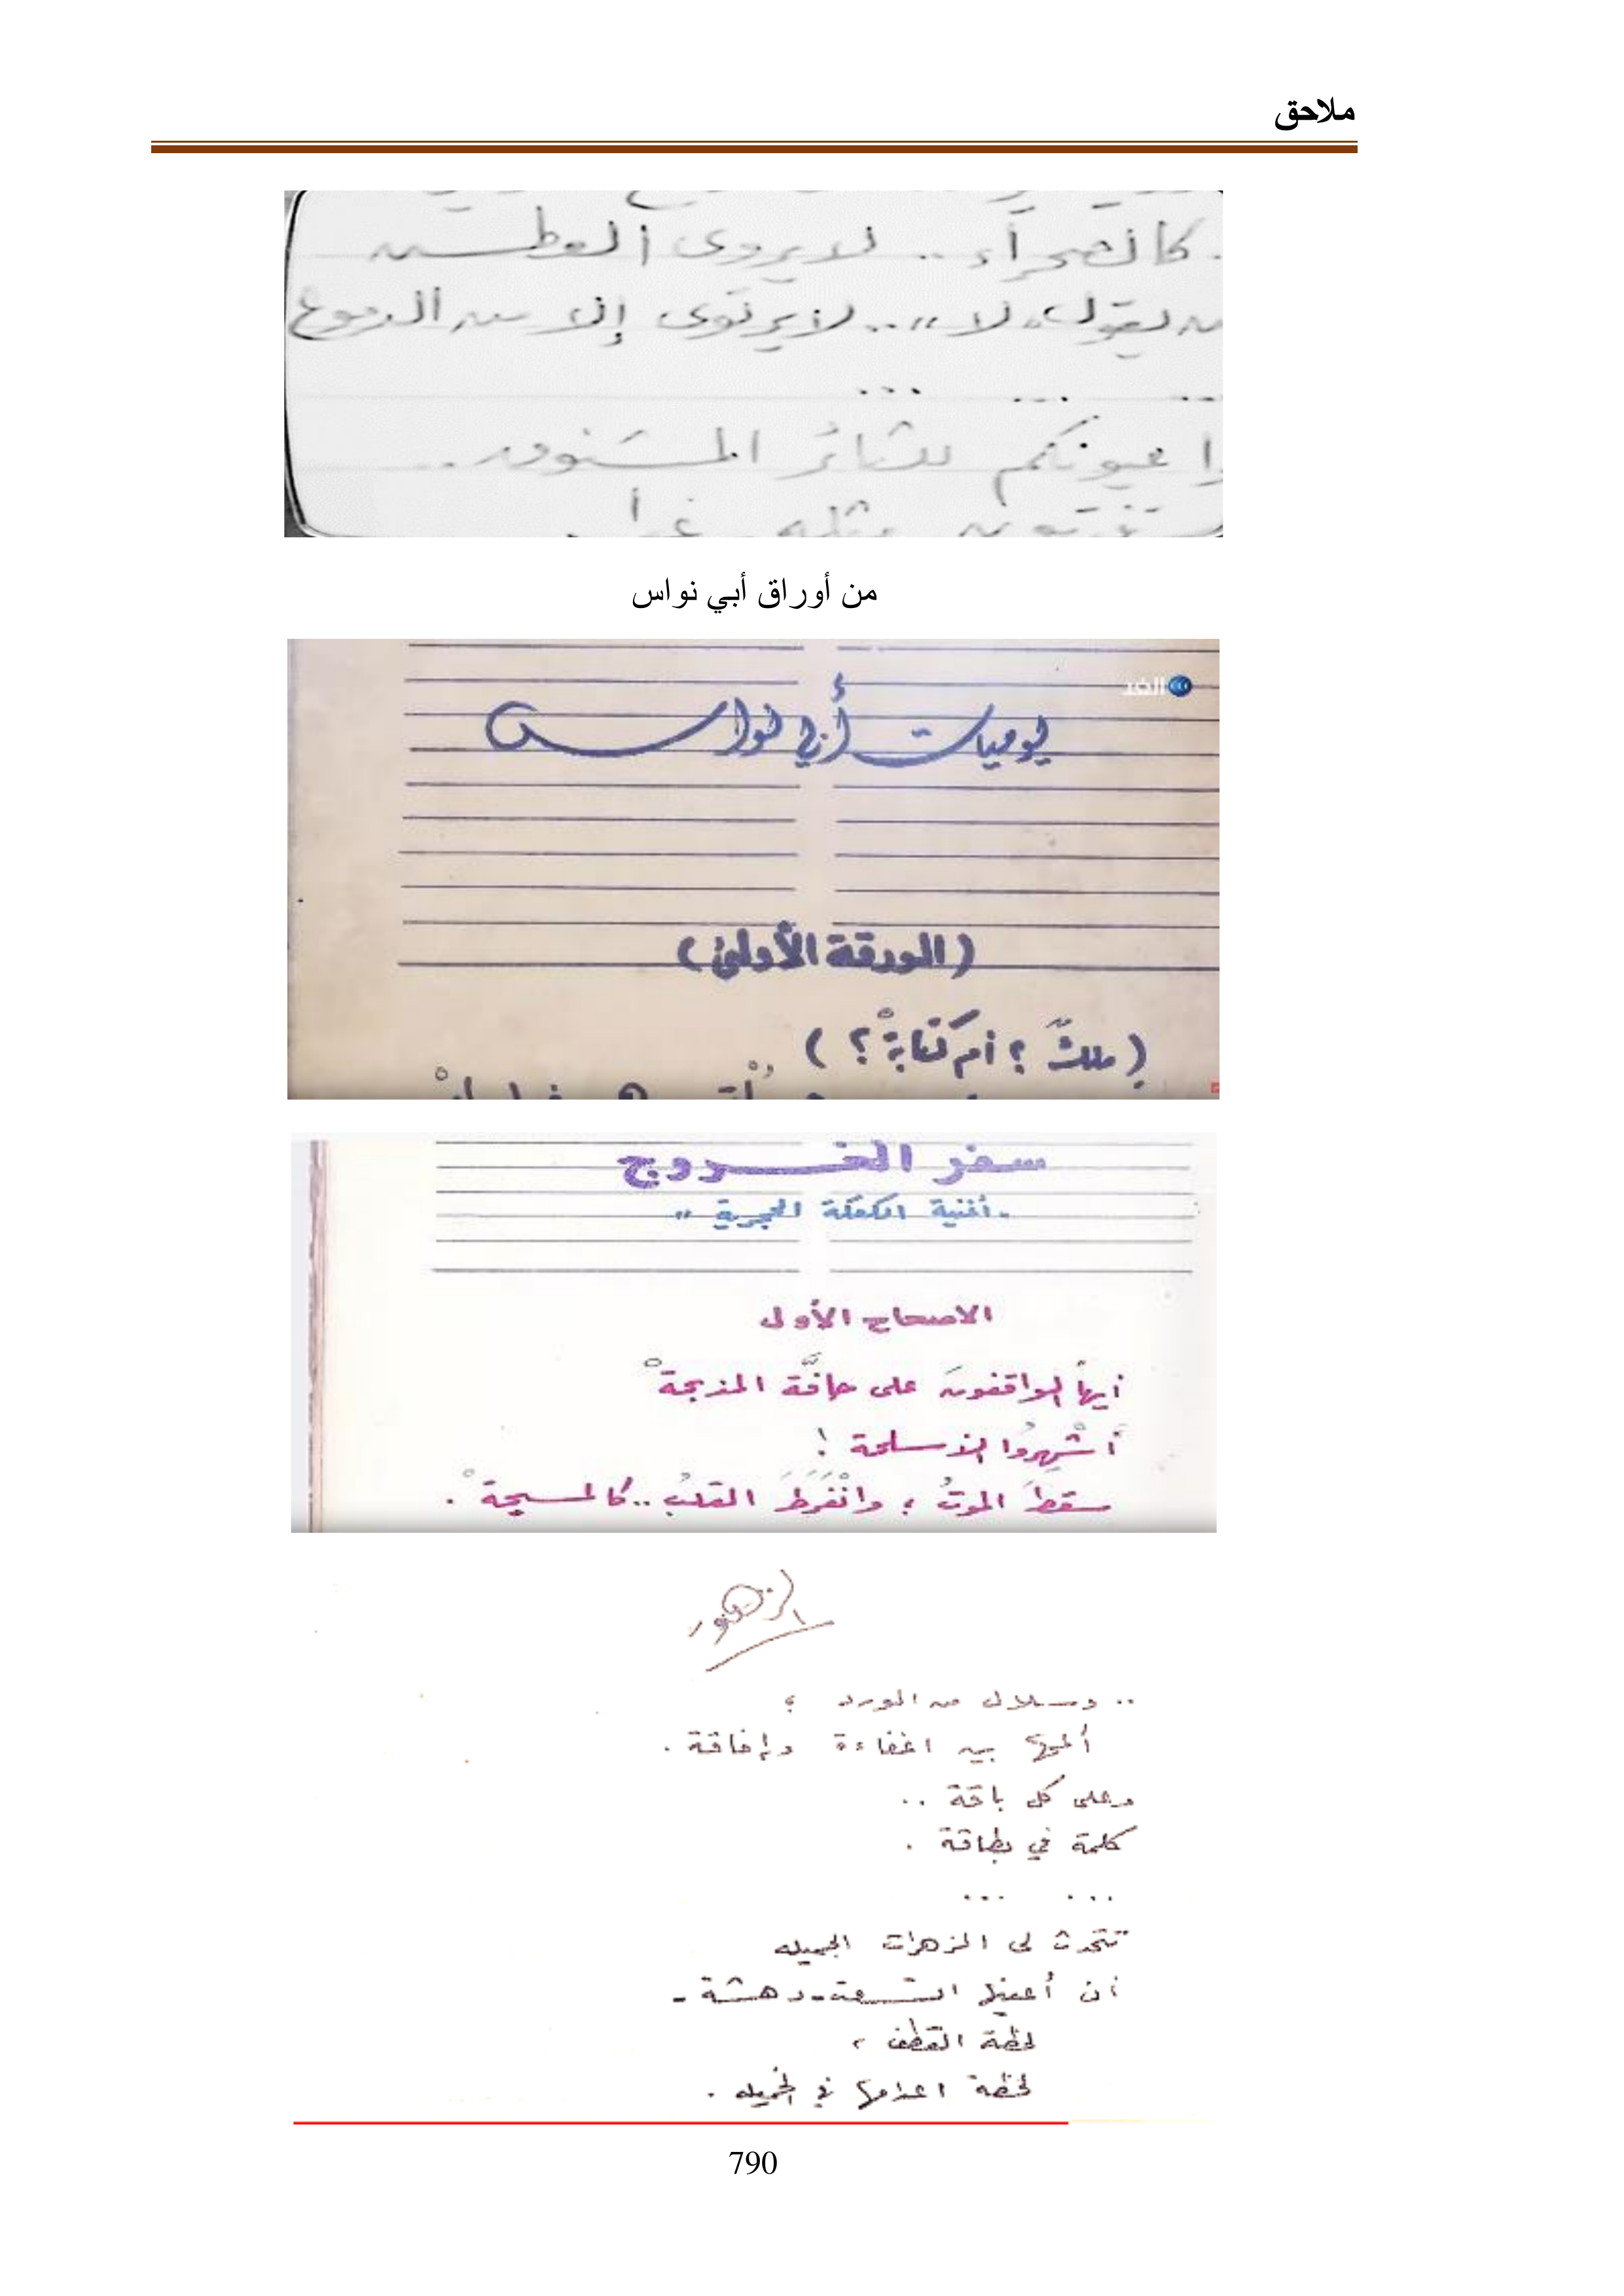 ملاحق
كالصحراء .. لا يروى العطش
من يقول "لا" .. لا يرتوى إلا من الدموع
... ... ..
عيونكم للثائر المشنوق ..
مثله غدا
من أوراق أبي نواس
الغد
يوميات أبي نواس
(الورقة الأولى)
(ملكٌ ؟ أم كتابةْ ؟)
سفر الخروج
"أغنية الكعكة الحجرية"
الاصحاح الأول
أيها الواقفونَ على حافَّة المذبحةْ
أشْهِروا الأسلحة !
سقطَ الموتُ ؛ وانْفَرَطَ القلبُ .. كالمسبحةْ .
الزهور
.. وسلال من الورد ؛
ألمحها بين اغفاءة وإفاقة .
وعلى كل باقة ..
كلمة في بطاقة .
... ...
تتحدث لى الزهرات الجميله
أن أعينها اتسعت - دهشة -
لحظة القطف ،
لحظة اعدامها في الخميله .
790